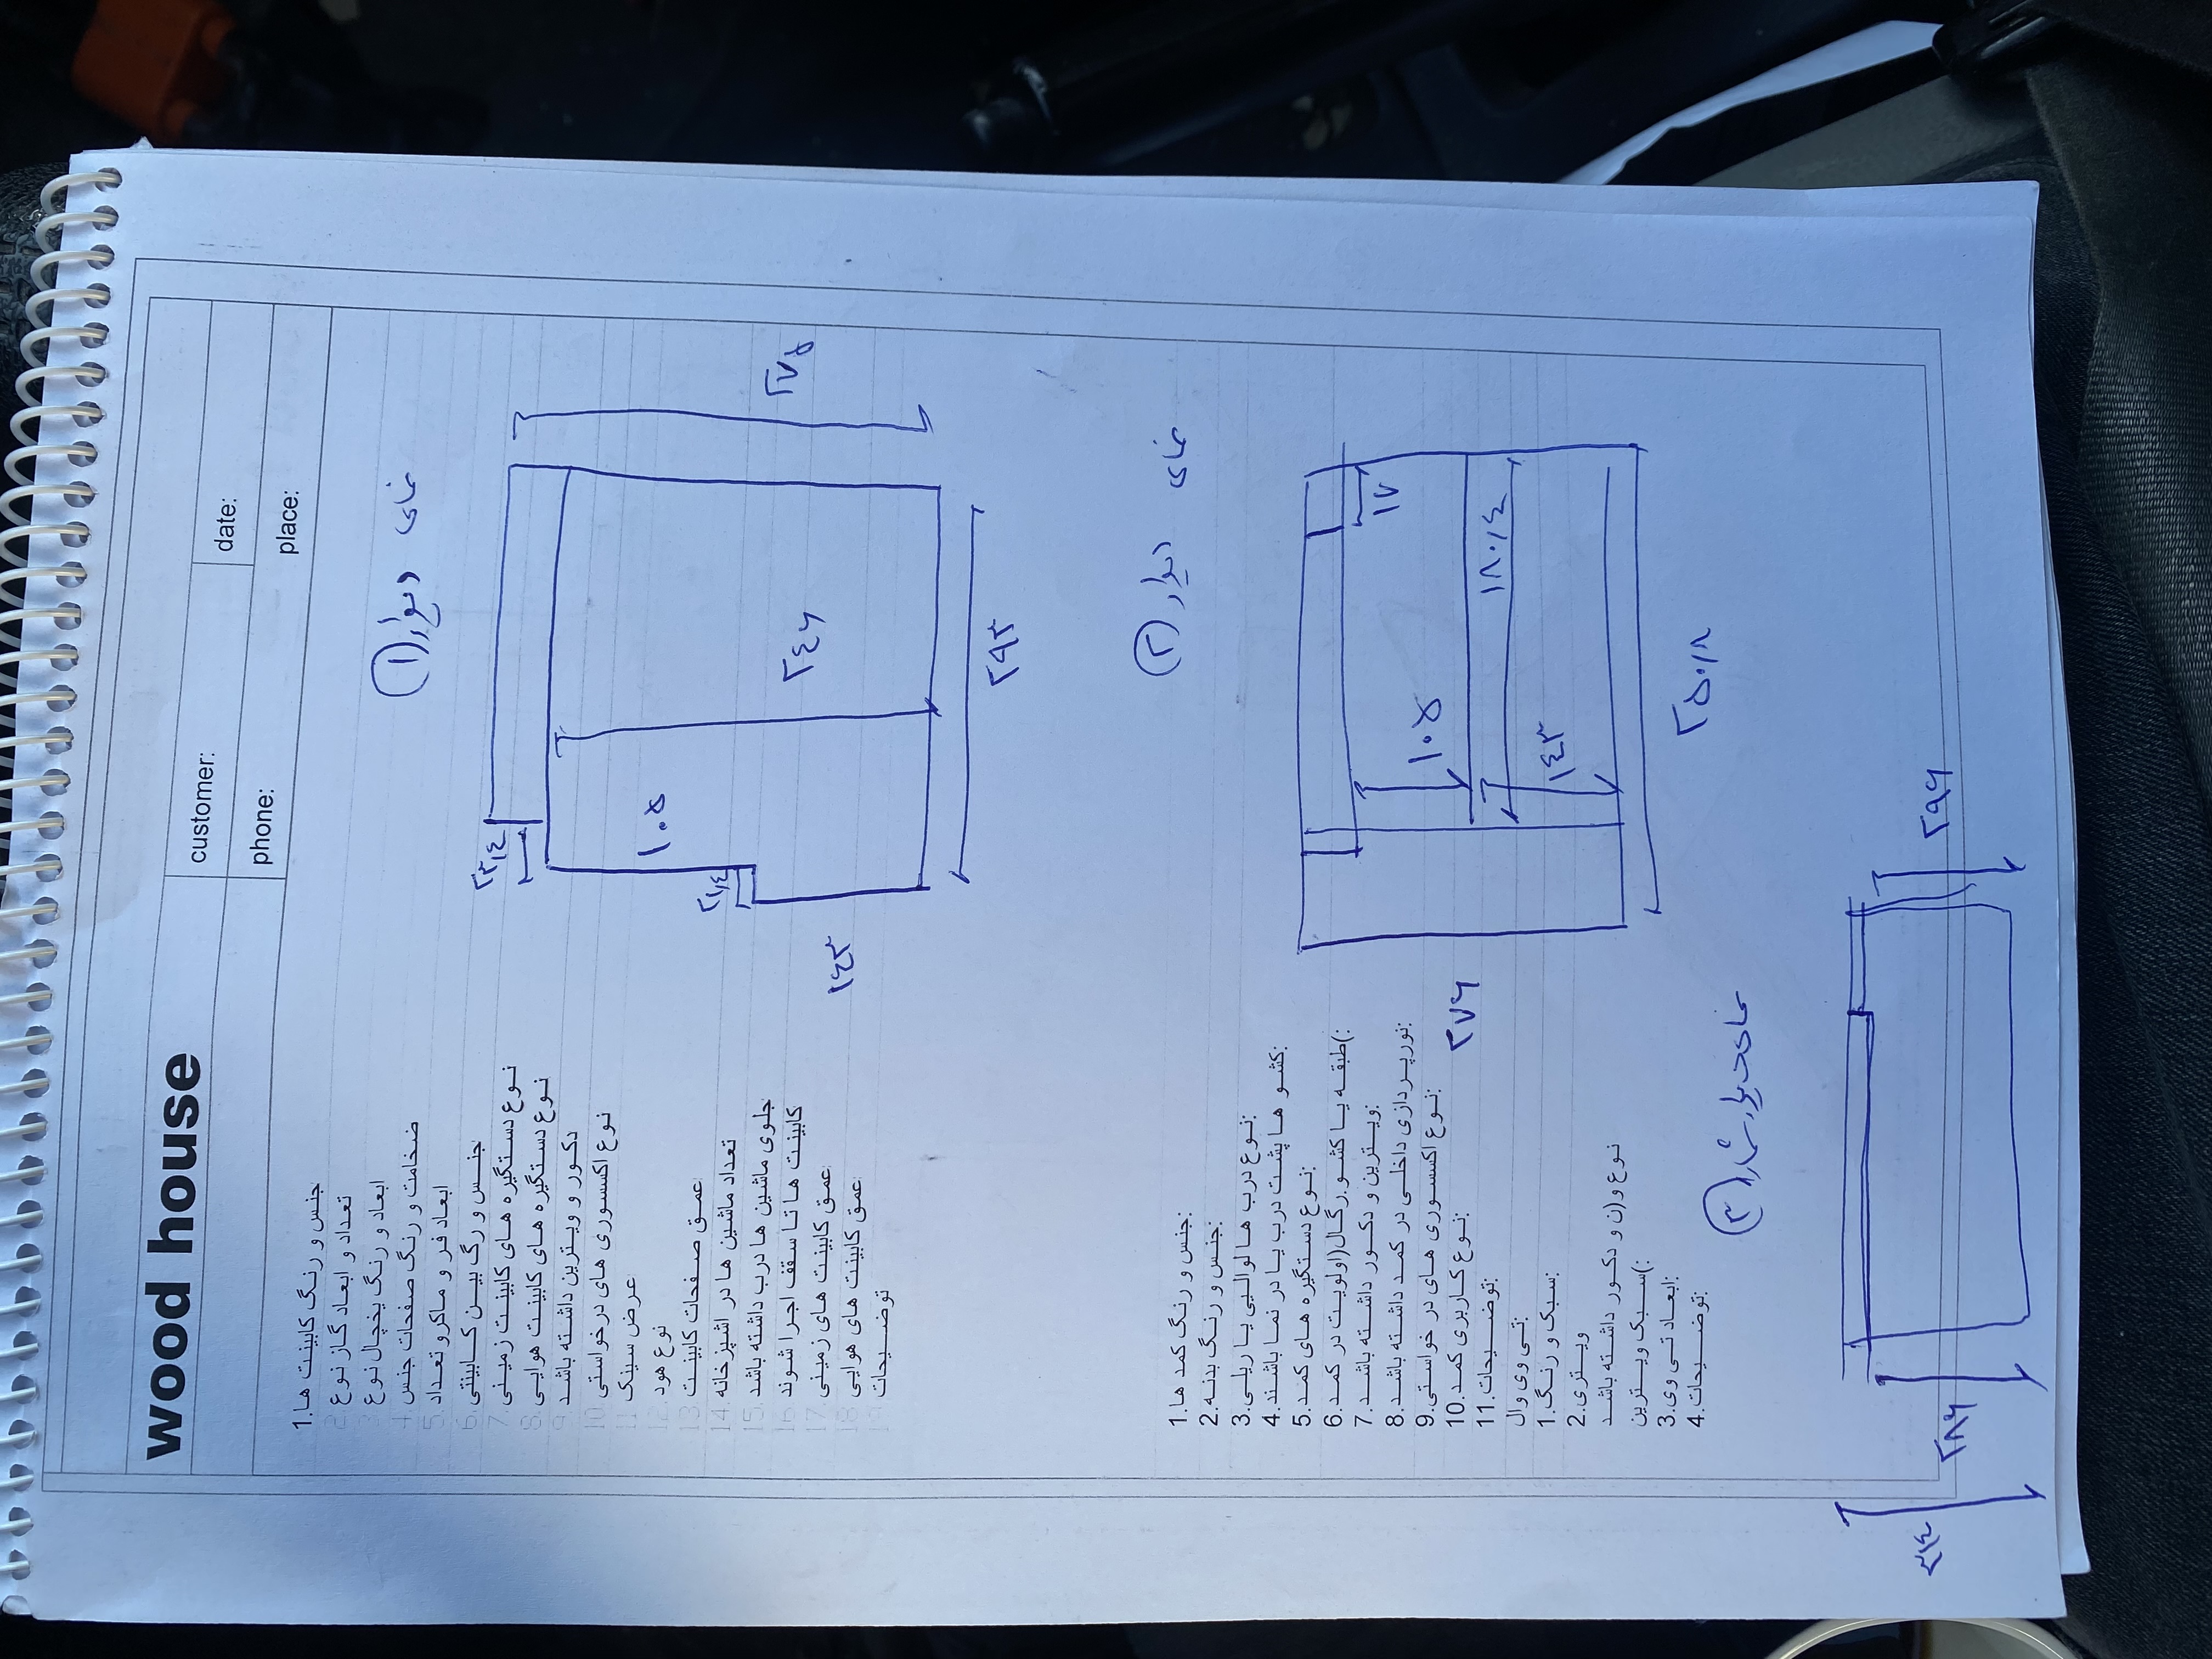 wood house
customer:
date:
phone:
place:
1.جنس و رنگ کابینت ها
2 تعداد و ابعاد گاز نوع
3 ابعاد و رنگ یخچال نوع
4 ضخامت و رنگ صفحات جنس
5. ابعاد فر و ماکرو تعداد
6. جنس و رگ بین کابینتی
7. نوع دستگیره های کابینت زمینی
8. نوع دستگیره های کابینت هوایی
9 دکور و ویترین داشته باشد
10 نوع اکسسوری های درخواستی
11 عرض سینک
12. نوع هود
13 عمق صفحات کابینت
14. تعداد ماشین ها در اشپزخانه
15. جلوی ماشین ها درب داشته باشد
16 کابینت ها تا سقف اجرا شوند
17. عمق کابینت های زمینی
18. عمق کابینت های هوایی
19 توضیحات
نمای دیوار ۱
۲۳٫٤
۱۰۵
۲۱٫٤
۱٤۳
۲٤۶
۲۷۵
۲۹۳
1.جنس و رنگ کمد ها:
2.جنس و رنگ بدنه:
3.نوع درب ها لوالیی یا ریلی:
4.کشو ها پشت درب یا در نما باشند:
5.نوع دستگیره های کمد:
6.طبقه یا کشو.رگال(اولویت در کمد):
7.ویترین و دکور داشته باشد:
8.نورپردازی داخلی در کمد داشته باشد:
9.نوع اکسسوری های در خواستی:
10.نوع کاربری کمد:
11.توضیحات:
تی وی وال:
1.سبک و رنگ:
2.ویتری
نوع و(ن و دکور داشته باشد
سبک ویترین):
3.ابعاد تی وی:
4.توضیحات:
نمای دیوار ۲
۱۷
۱۰۵
۲۷۶
۱۸۰٫٤
۱٤۳
۲۵۰٫۸
نمای دیوار شمار ۳
۳۱٤
۲۸۶
۲۹۶